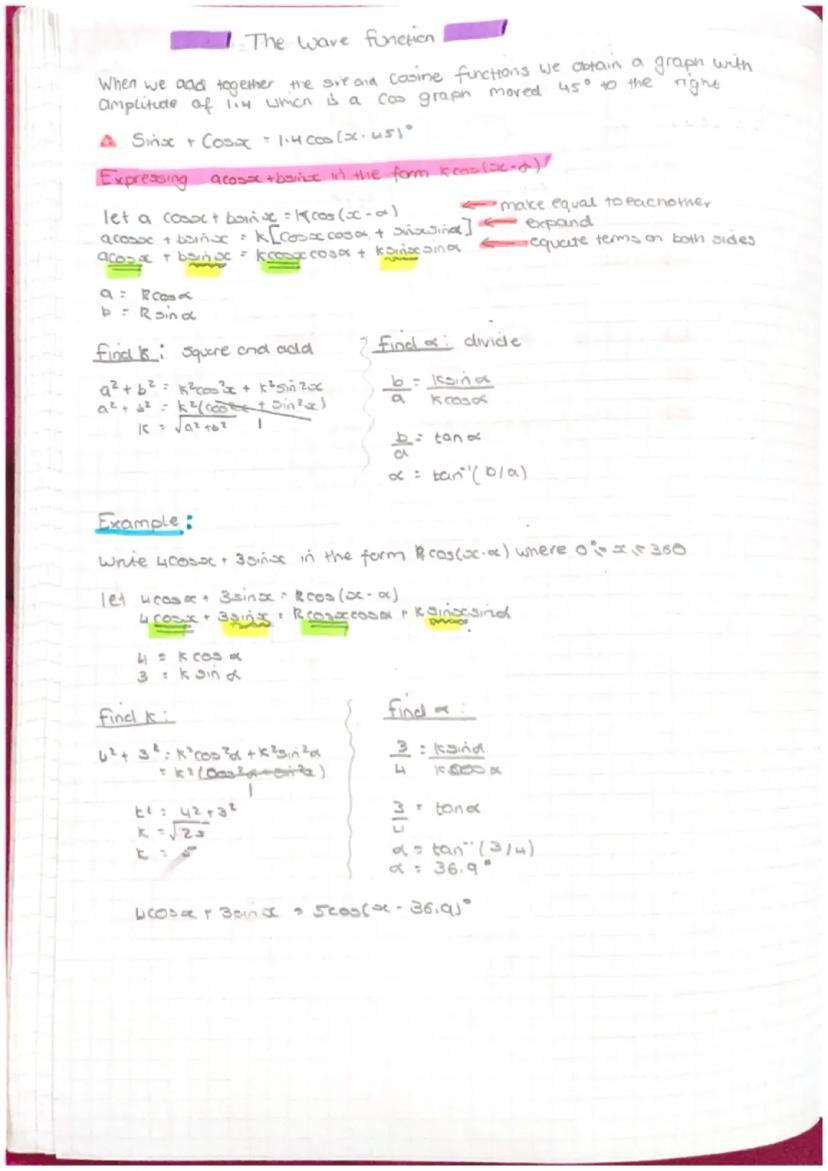 The wave function
When we add together the sine and cosine functions we obtain a graph with
amplitude of 1.4 which is a cos graph moved 45° to the right
Sinx + Cosx = 1.4cos(x-45)°
Expressing acosx+bsinx in the form kcos(x-α)
let a cosx + bsinx = Kcos(x-α) ← make equal to eachother
acosx + bsinx = k[cosxcosα + sinxsinα] ← expand
acosx + bsinx = kcosxcosα + ksinxsinα ← equate terms on both sides
a = Kcosα
b = Ksinα
Find k: square and add
a² + b² = k²cos²x + k²sin²x
a² + b² = k²(cos²x + sin²x)
K = √a²+b² 1
Find α: divide
b/a = ksinα/kcosα
b/a = tanα
α = tan⁻¹(b/a)
Example:
Write 4cosx + 3sinx in the form Kcos(x-α) where 0°≤x≤360
let 4cosx + 3sinx = Kcos(x-α)
4cosx + 3sinx = Kcosxcosα + Ksinxsinα
4 = kcosα
3 = ksinα
Find k:
4² + 3² = k²cos²α + k²sin²α
= k²(cos²α+sin²α)
1
k² = 4²+3²
k = √25
k = 5
find α:
3/4 = ksinα/kcosα
3/4 = tanα
α = tan⁻¹(3/4)
α = 36.9°
4cosx + 3sinx = 5cos(x - 36.9)°